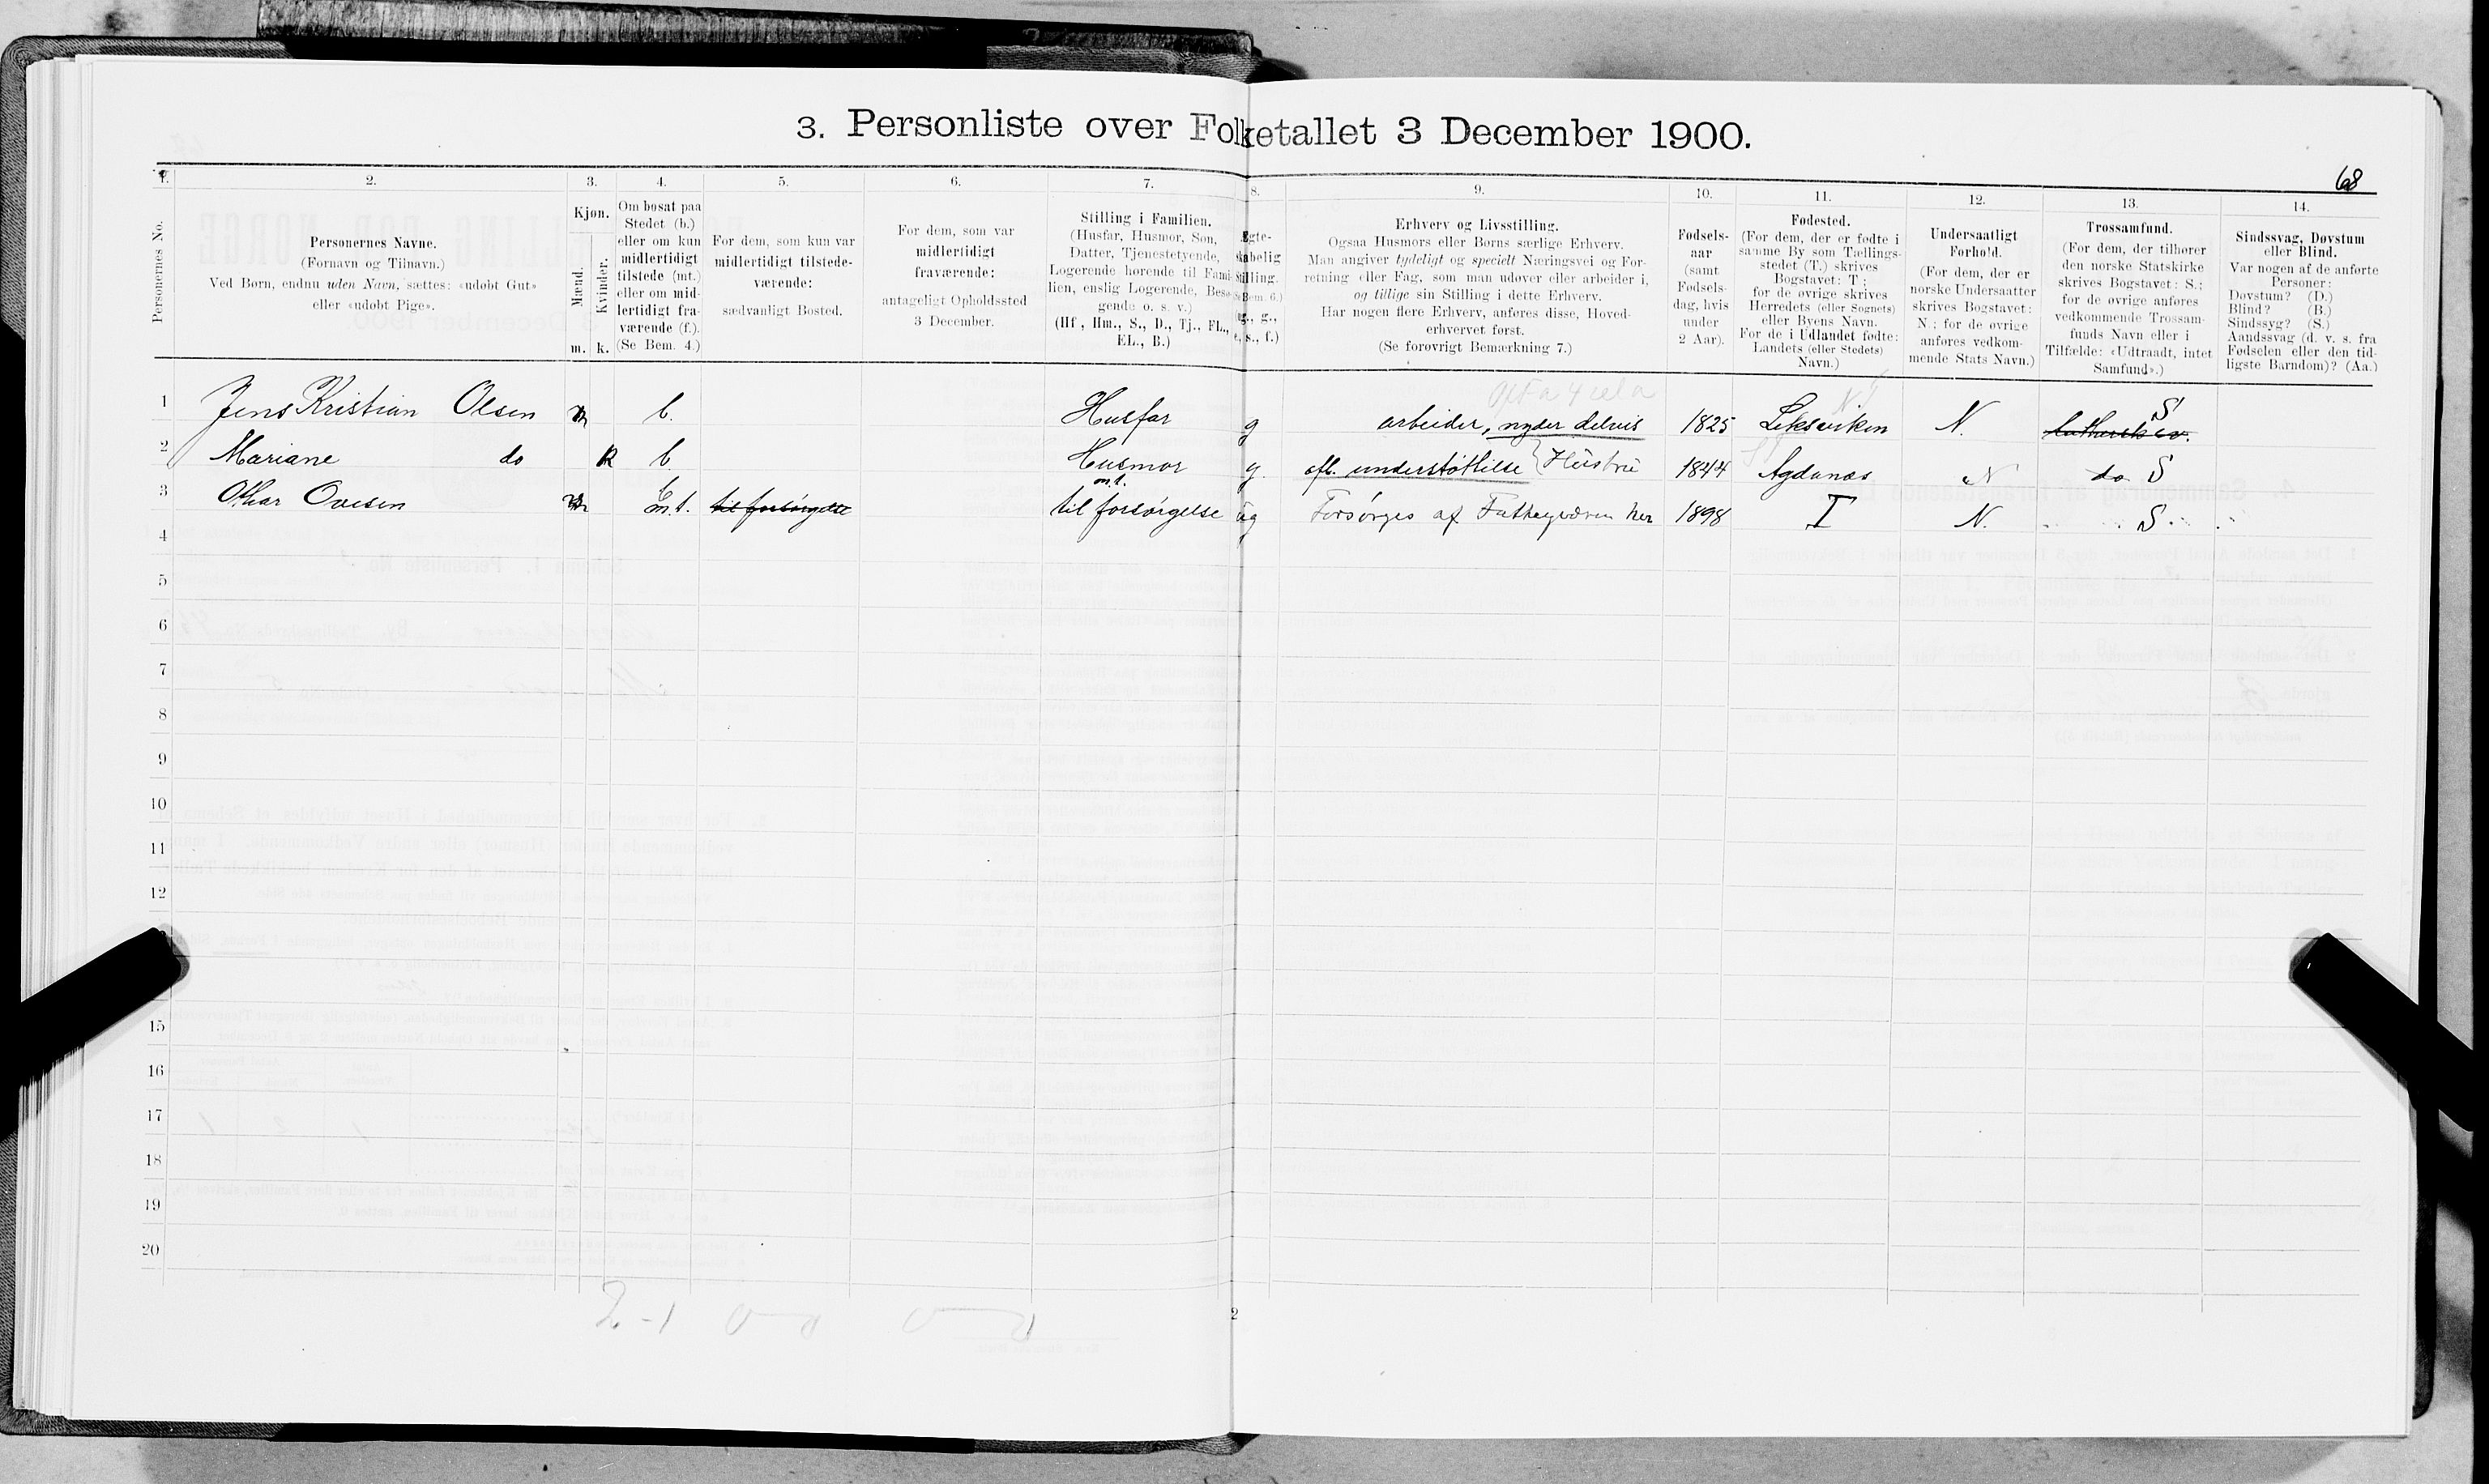 3. Personliste over Folketallet 3 December 1900.
68
1. 2. 3. 4. 5. 6. 7. 8. 9. 10. 11. 12. 13. 14.
Personernes No.
Personernes Navne.
(Fornavn og Tilnavn.)
Ved Børn, endnu uden Navn, sættes: «udøbt Gut»
eller «udøbt Pige».
Kjøn.
Mænd.
Kvinder.
m. k.
Om bosat paa
Stedet (b.)
eller om kun
midlertidigt
tilstede (mt.)
eller om mid-
lertidigt fra-
værende (f.).
(Se Bem. 4.)
For dem, som kun var
midlertidigt tilstede-
værende:
sædvanligt Bosted.
For dem, som var
midlertidigt
fraværende:
antageligt Opholdssted
3 December.
Stilling i Familien.
(Husfar, Husmor, Søn,
Datter, Tjenestetyende,
Logerende hørende til Fami-
lien, enslig Logerende, Besø-
gende o. s. v.)
(Hf., Hm., S., D., Tj., FL.,
EL., B.)
Ægte-
skabelig
Stilling.
(Se Bem. 6.)
(ug., g.,
e., s., f.)
Erhverv og Livsstilling.
Ogsaa Husmors eller Børns særlige Erhverv.
Man angiver tydeligt og specielt Næringsvei og For-
retning eller Fag, som man udøver eller arbeider i,
og tillige sin Stilling i dette Erhverv.
Har nogen flere Erhverv, anføres disse, Hoved-
erhvervet først.
(Se forøvrigt Bemærkning 7.)
Fødsels-
aar
(samt
Fødsels-
dag, hvis
under
2 Aar).
Fødested.
(For dem, der er fødte i
samme By som Tællings-
stedet (T.) skrives
Bogstavet: T;
for de øvrige skrives
Herredets (eller Sognets)
eller Byens Navn.
For de i Udlandet fødte:
Landets (eller Stedets)
Navn.)
Undersaatligt
Forhold.
(For dem, der er
norske Undersaatter
skrives Bogstavet:
N.; for de øvrige
anføres vedkom-
mende Stats Navn.)
Trossamfund.
(For dem, der tilhører
den norske Statskirke
skrives Bogstavet: S.;
for de øvrige anføres
vedkommende Trossam-
funds Navn eller i
Tilfælde: «Udtraadt, intet
Samfund».)
Sindssvag, Døvstum
eller Blind.
Var nogen af de anførte
Personer:
Døvstum? (D.)
Blind? (B.)
Sindssyg? (S.)
Aandssvag (d. v. s. fra
Fødselen eller den tid-
ligste Barndom)? (Aa.)
1 Jens Kristian Olsen m b. Husfar g arbeider, nyder delvis 1825 Leksviken N. S
2 Mariane do k b Husmor g. understøttelse Hustru 1844 Agdanæs N do S
3 Othar Ovesen m b m.t. til forsørgelse m.t. til forsørgelse ug Forsørges af her 1898 T N. S
4
5
6
7
8
9
10
11
12
15
16
17
18
19
20
2